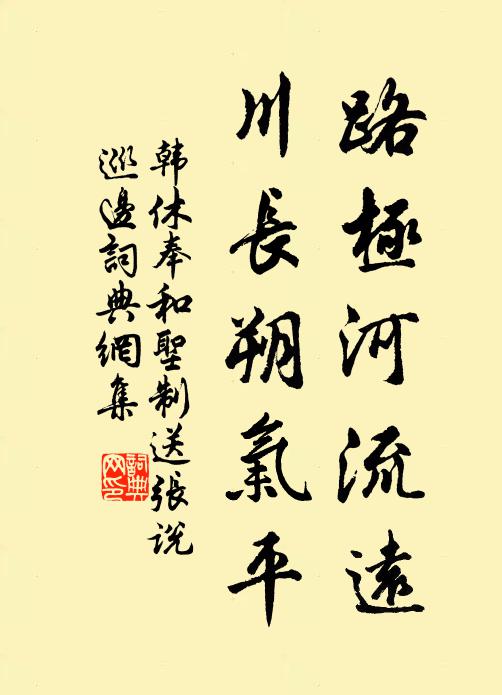 路極河流遠
川長朔氣平
韩休奉和聖制送張说
巡邊詞典網集
詞典网印